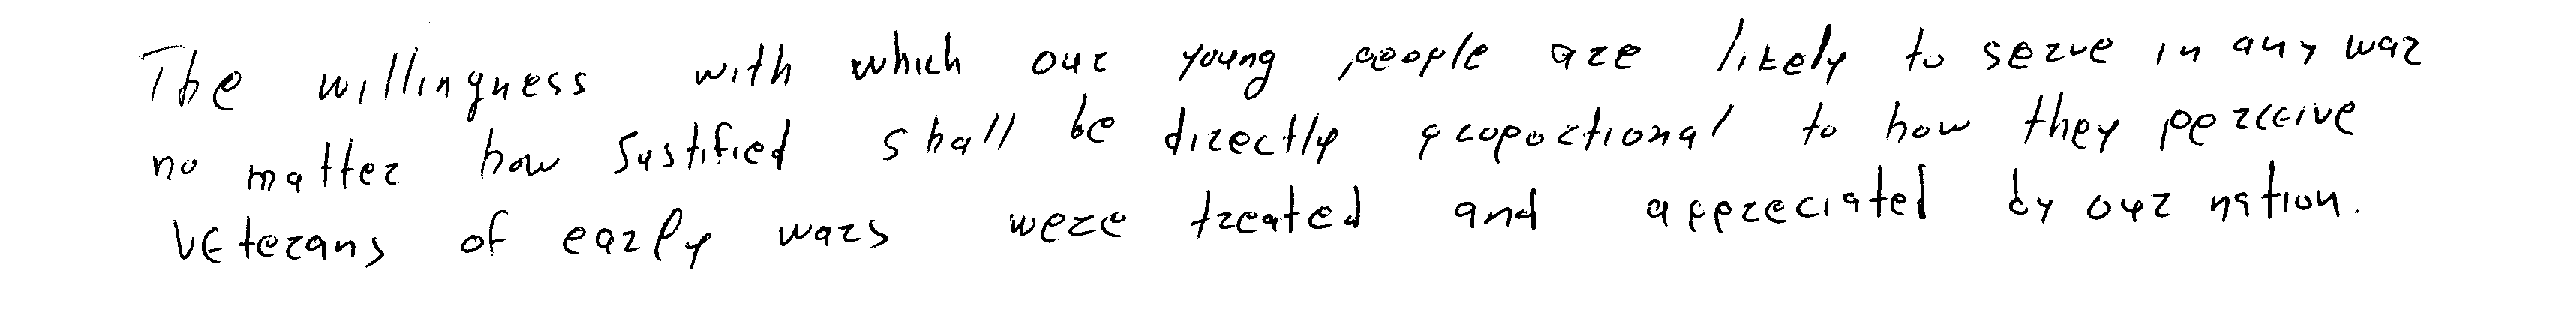 The willingness with which our young people are likely to serve in any war
no matter how justified shall be directly proportional to how they perceive
veterans of early wars were treated and appreciated by our nation.